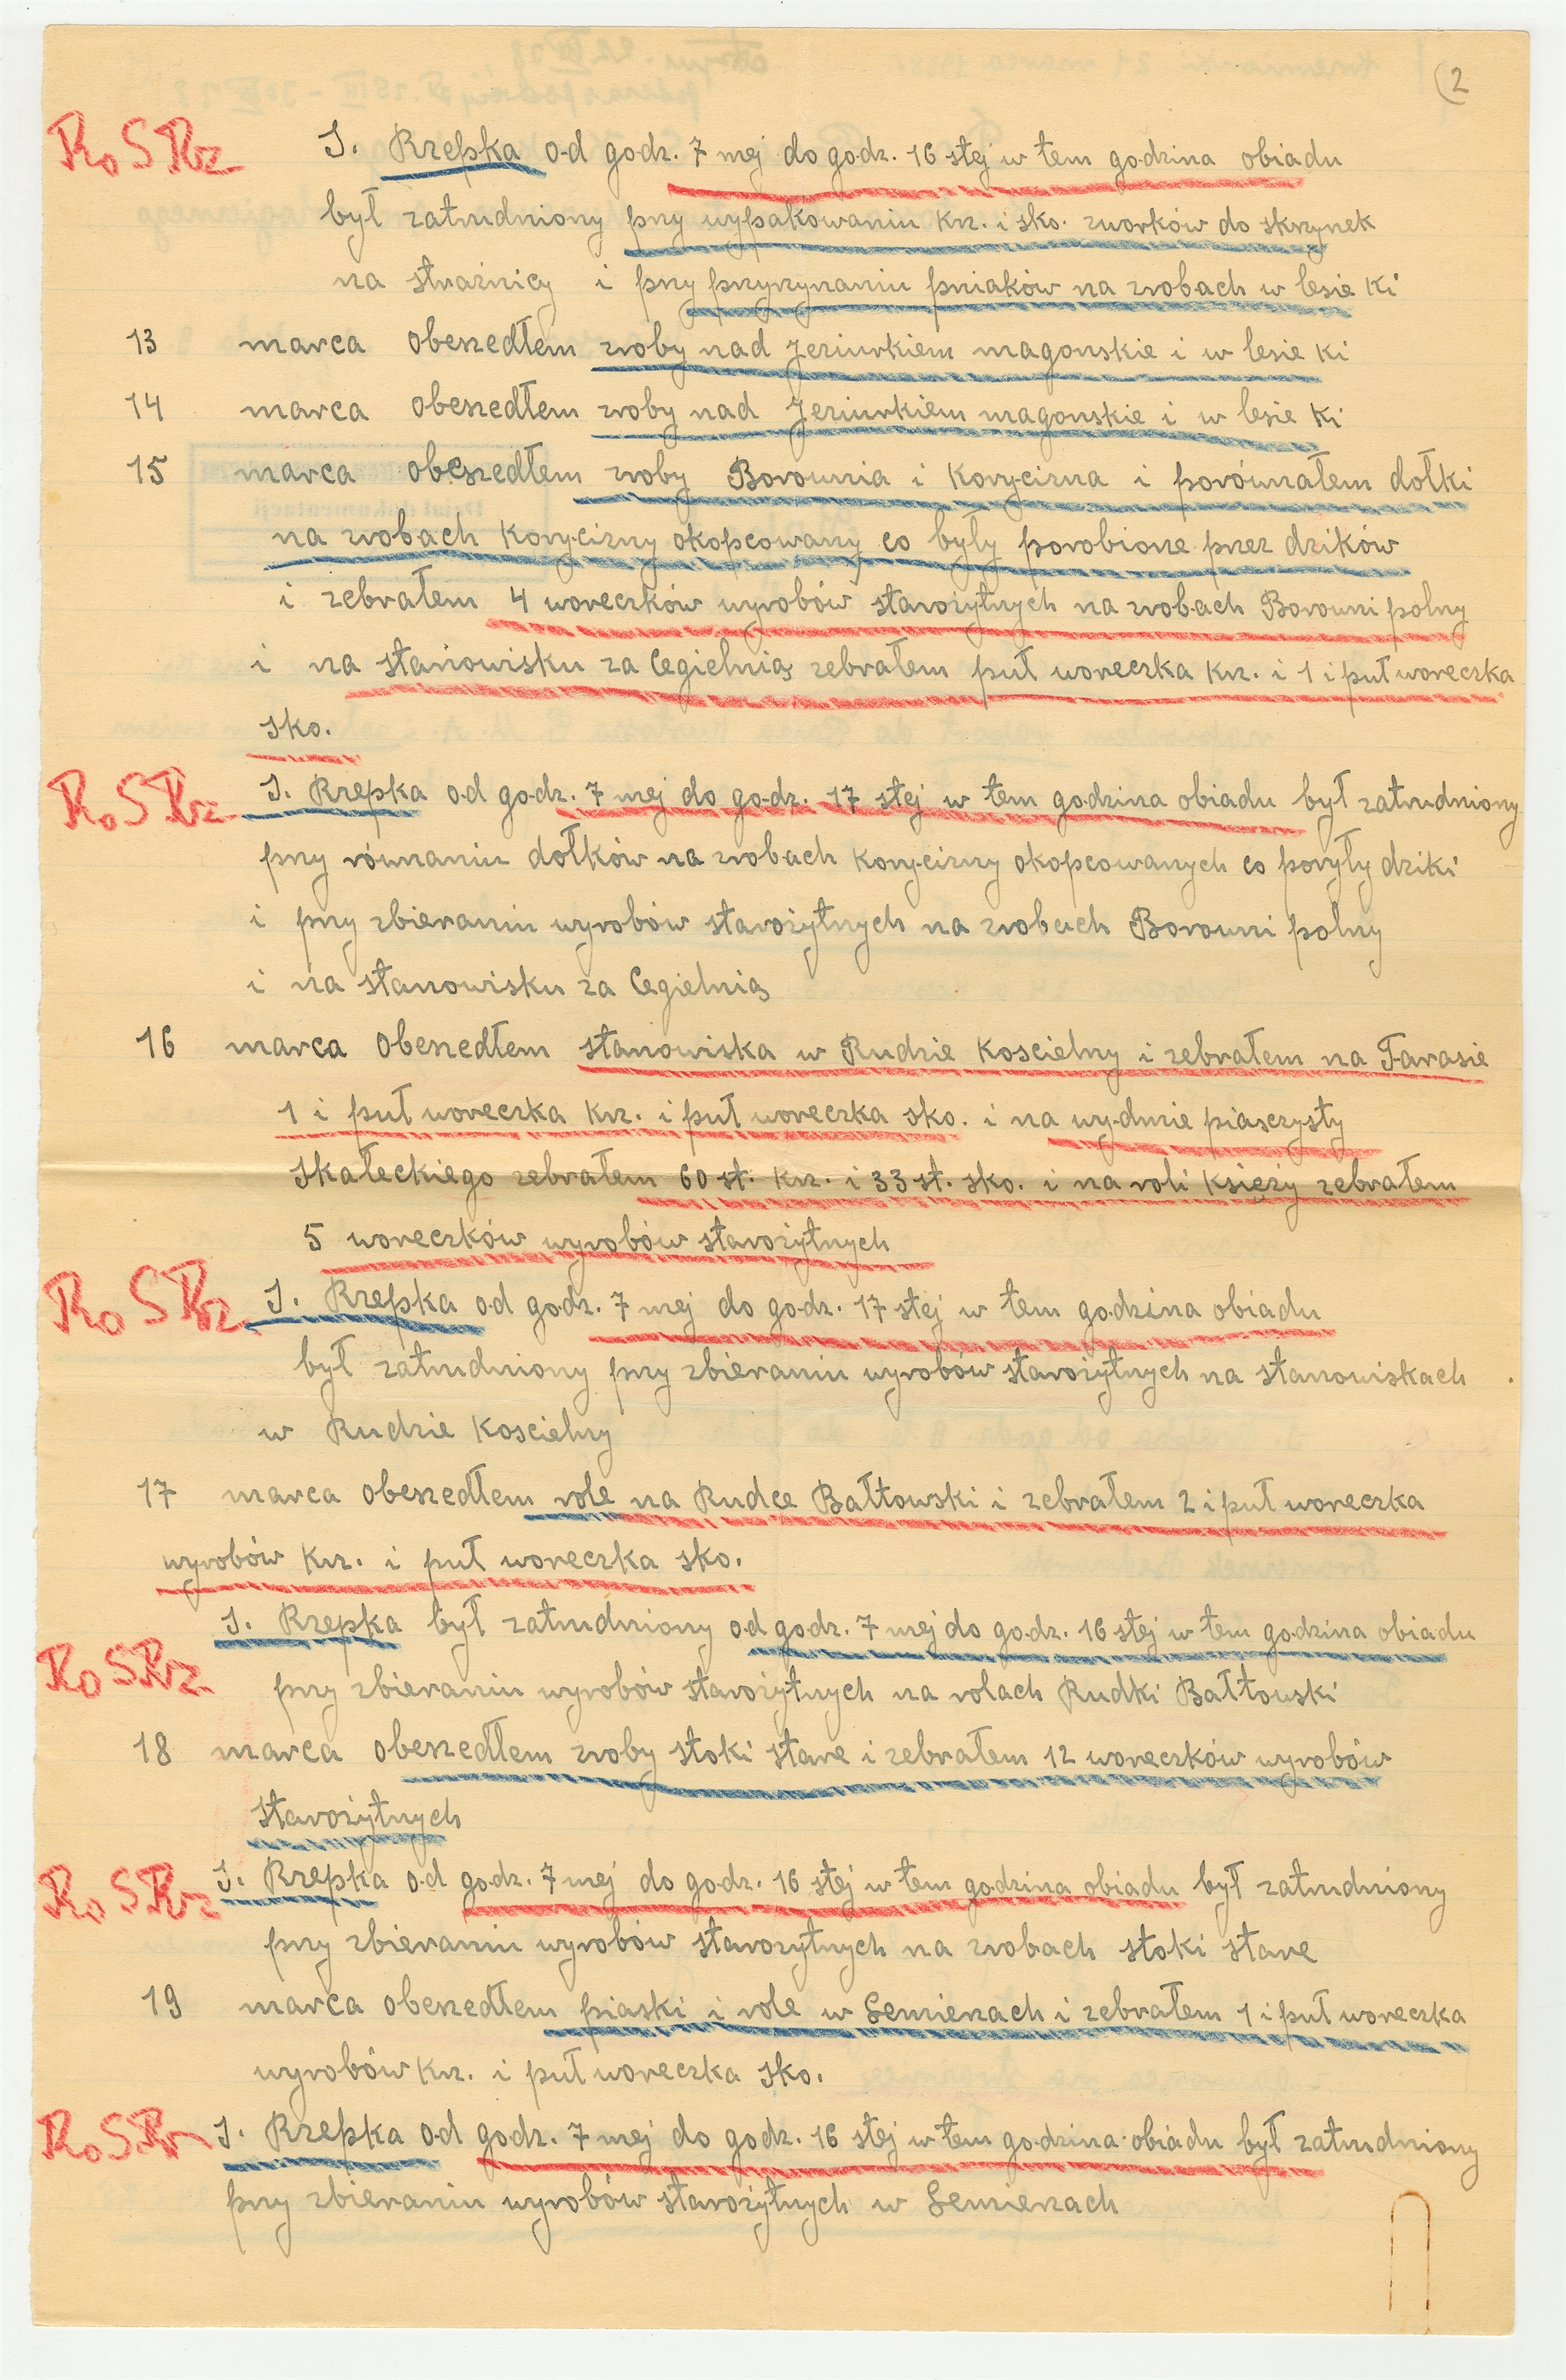 2
Ro S Rz J. Rzepka od godz. 7 mej do godz. 16 stej w tem godzina obiadu
był zatrudniony pzy wypakowaniu krz. i sko. zworków do skrzynek
na strażnicy i pzy pzyrzynaniu pniaków na zrobach w lesie ki
13 marca obeszedłem zroby nad Jeziurkiem magonskie i w lesie ki
14 marca obeszedłem zroby nad Jeziurkiem magonskie i w lesie ki
15 marca obeszedłem zroby Borownia i Korycizna i porównałem dołki
na zrobach Korycizny okopcowany co były porobione przez dzików
i zebrałem 4 woreczków wyrobów starożytnych na zrobach Borowni polny
i na stanowisku za Cegielnią zebrałem puł woreczka krz. i 1 i puł woreczka
sko.
Ro S Rz J. Rzepka od godz. 7 mej do godz. 17 stej w tem godzina obiadu był zatrudniony
pzy równaniu dołków na zrobach Korycizny okopcowanych co poryły dziki
i pzy zbieraniu wyrobów starożytnych na zrobach Borowni polny
i na stanowisku za Cegielnią
16 marca obeszedłem stanowiska w Rudzie Koscielny i zebrałem na Farasie
1 i puł woreczka krz. i puł woreczka sko. i na wydmie piasczysty
Skałeckiego zebrałem 60 st. krz. i 33 st. sko. i na roli księży zebrałem
5 woreczków wyrobów starożytnych
Ro S Rz J. Rzepka od godz. 7 mej do godz. 17 stej w tem godzina obiadu
był zatrudniony pzy zbieraniu wyrobów starożytnych na stanowiskach
w Rudzie Koscielny
17 marca obeszedłem role na Rudce Bałtowski i zebrałem 2 i puł woreczka
wyrobów krz. i puł woreczka sko.
J. Rzepka był zatrudniony od godz. 7 mej do godz. 16 stej w tem godzina obiadu
Ro S Rz pzy zbieraniu wyrobów starożytnych na rolach Rudki Bałtowski
18 marca obeszedłem zroby stoki stare i zebrałem 12 woreczków wyrobów
starożytnych
Ro S Rz J. Rzepka od godz. 7 mej do godz. 16 stej w tem godzina obiadu był zatrudniony
pzy zbieraniu wyrobów starożytnych na zrobach stoki stare
19 marca obeszedłem piaski i role w Semienach i zebrałem 1 i puł woreczka
wyrobów krz. i puł woreczka sko.
Ro S Rz J. Rzepka od godz. 7 mej do godz. 16 stej w tem godzina obiadu był zatrudniony
pzy zbieraniu wyrobów starożytnych w Semienach